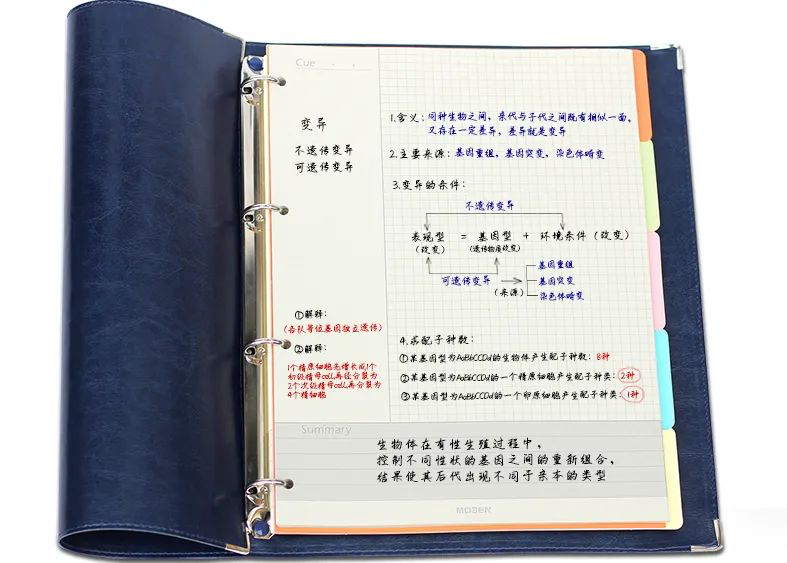 Cue
变异
不遗传变异
可遗传变异
①解释:
(各队等位基因独立遗传)
②解释:
1个精原细胞先增长成1个
初级精母cell再经分裂为
2个次级精母cell再分裂为
4个精细胞
1.含义:同种生物之间,亲代与子代之间既有相似一面,
又存在一定差异,差异就是变异
2.主要来源:基因重组,基因突变,染色体畸变
3.变异的条件:
不遗传变异
表现型 = 基因型 + 环境条件(改变)
(改变) (遗传物质改变)
可遗传变异
(来源)
基因重组
基因突变
染色体畸变
4.求配子种数:
①某基因型为AaBbCCDd的生物体产生配子种数:8种
②某基因型为AaBbCCDd的一个精原细胞产生配子种类:2种
③某基因型为AaBbCCDd的一个卵原细胞产生配子种类:1种
Summary
生物体在有性生殖过程中,
控制不同性状的基因之间的重新组合,
结果使其后代出现不同于亲本的类型
MOBEN